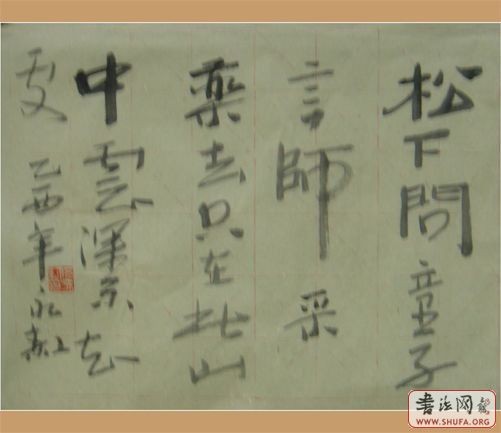 松下問童子
言師采
藥去只在此山
中雲深不知
處 乙酉年永
書法网
WWW.SHUFA.ORG